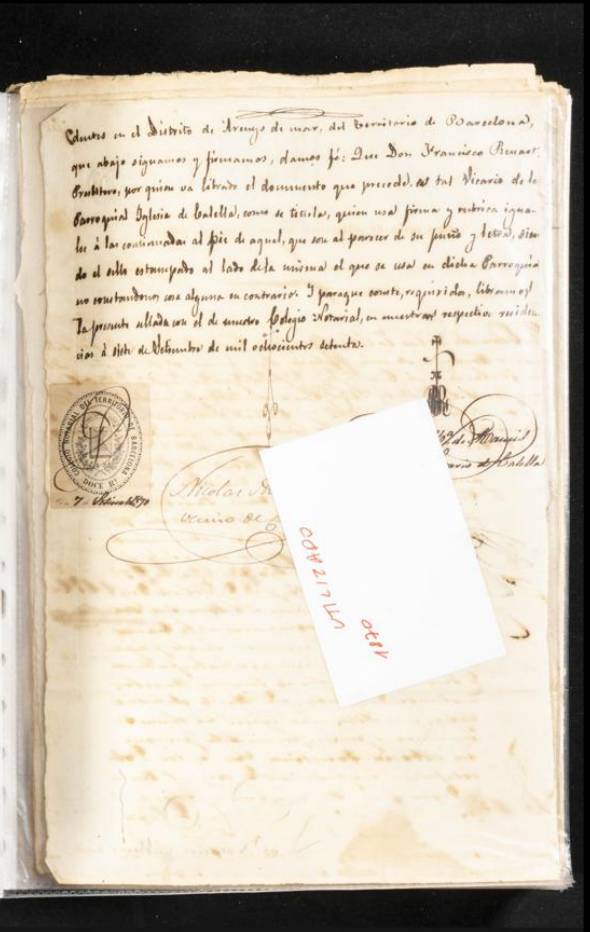 dentes en el Distrito de Arenys de mar, del territorio de Barcelona,
que abajo signamos y firmamos, damos fé: Que Don Francisco
Presbitero, por quien va librado el documento que precede, es tal Vicario de la
Parroquial Iglesia de Calella, como se titula, quien usa firma y rubrica igua-
les á las continuadas al pie de aquel, que son al parecer de su puño y letra, sien-
do el sello estampado al lado de la misma el que se usa en dicha Parroquia
no constandonos cosa alguna en contrario. Y paraque conste, requiridos, libramos
la presente sellada con el de nuestro Colegio Notarial, en nuestras respectivas residen-
cias á siete de Setiembre de mil ochocientos setenta.
COLEGIO NOTARIAL DEL TERRITORIO DE BARCELONA
DOCE Rs
7 1870
de
de Calella
Nicolas
vecino de
UTILIZADO
1870